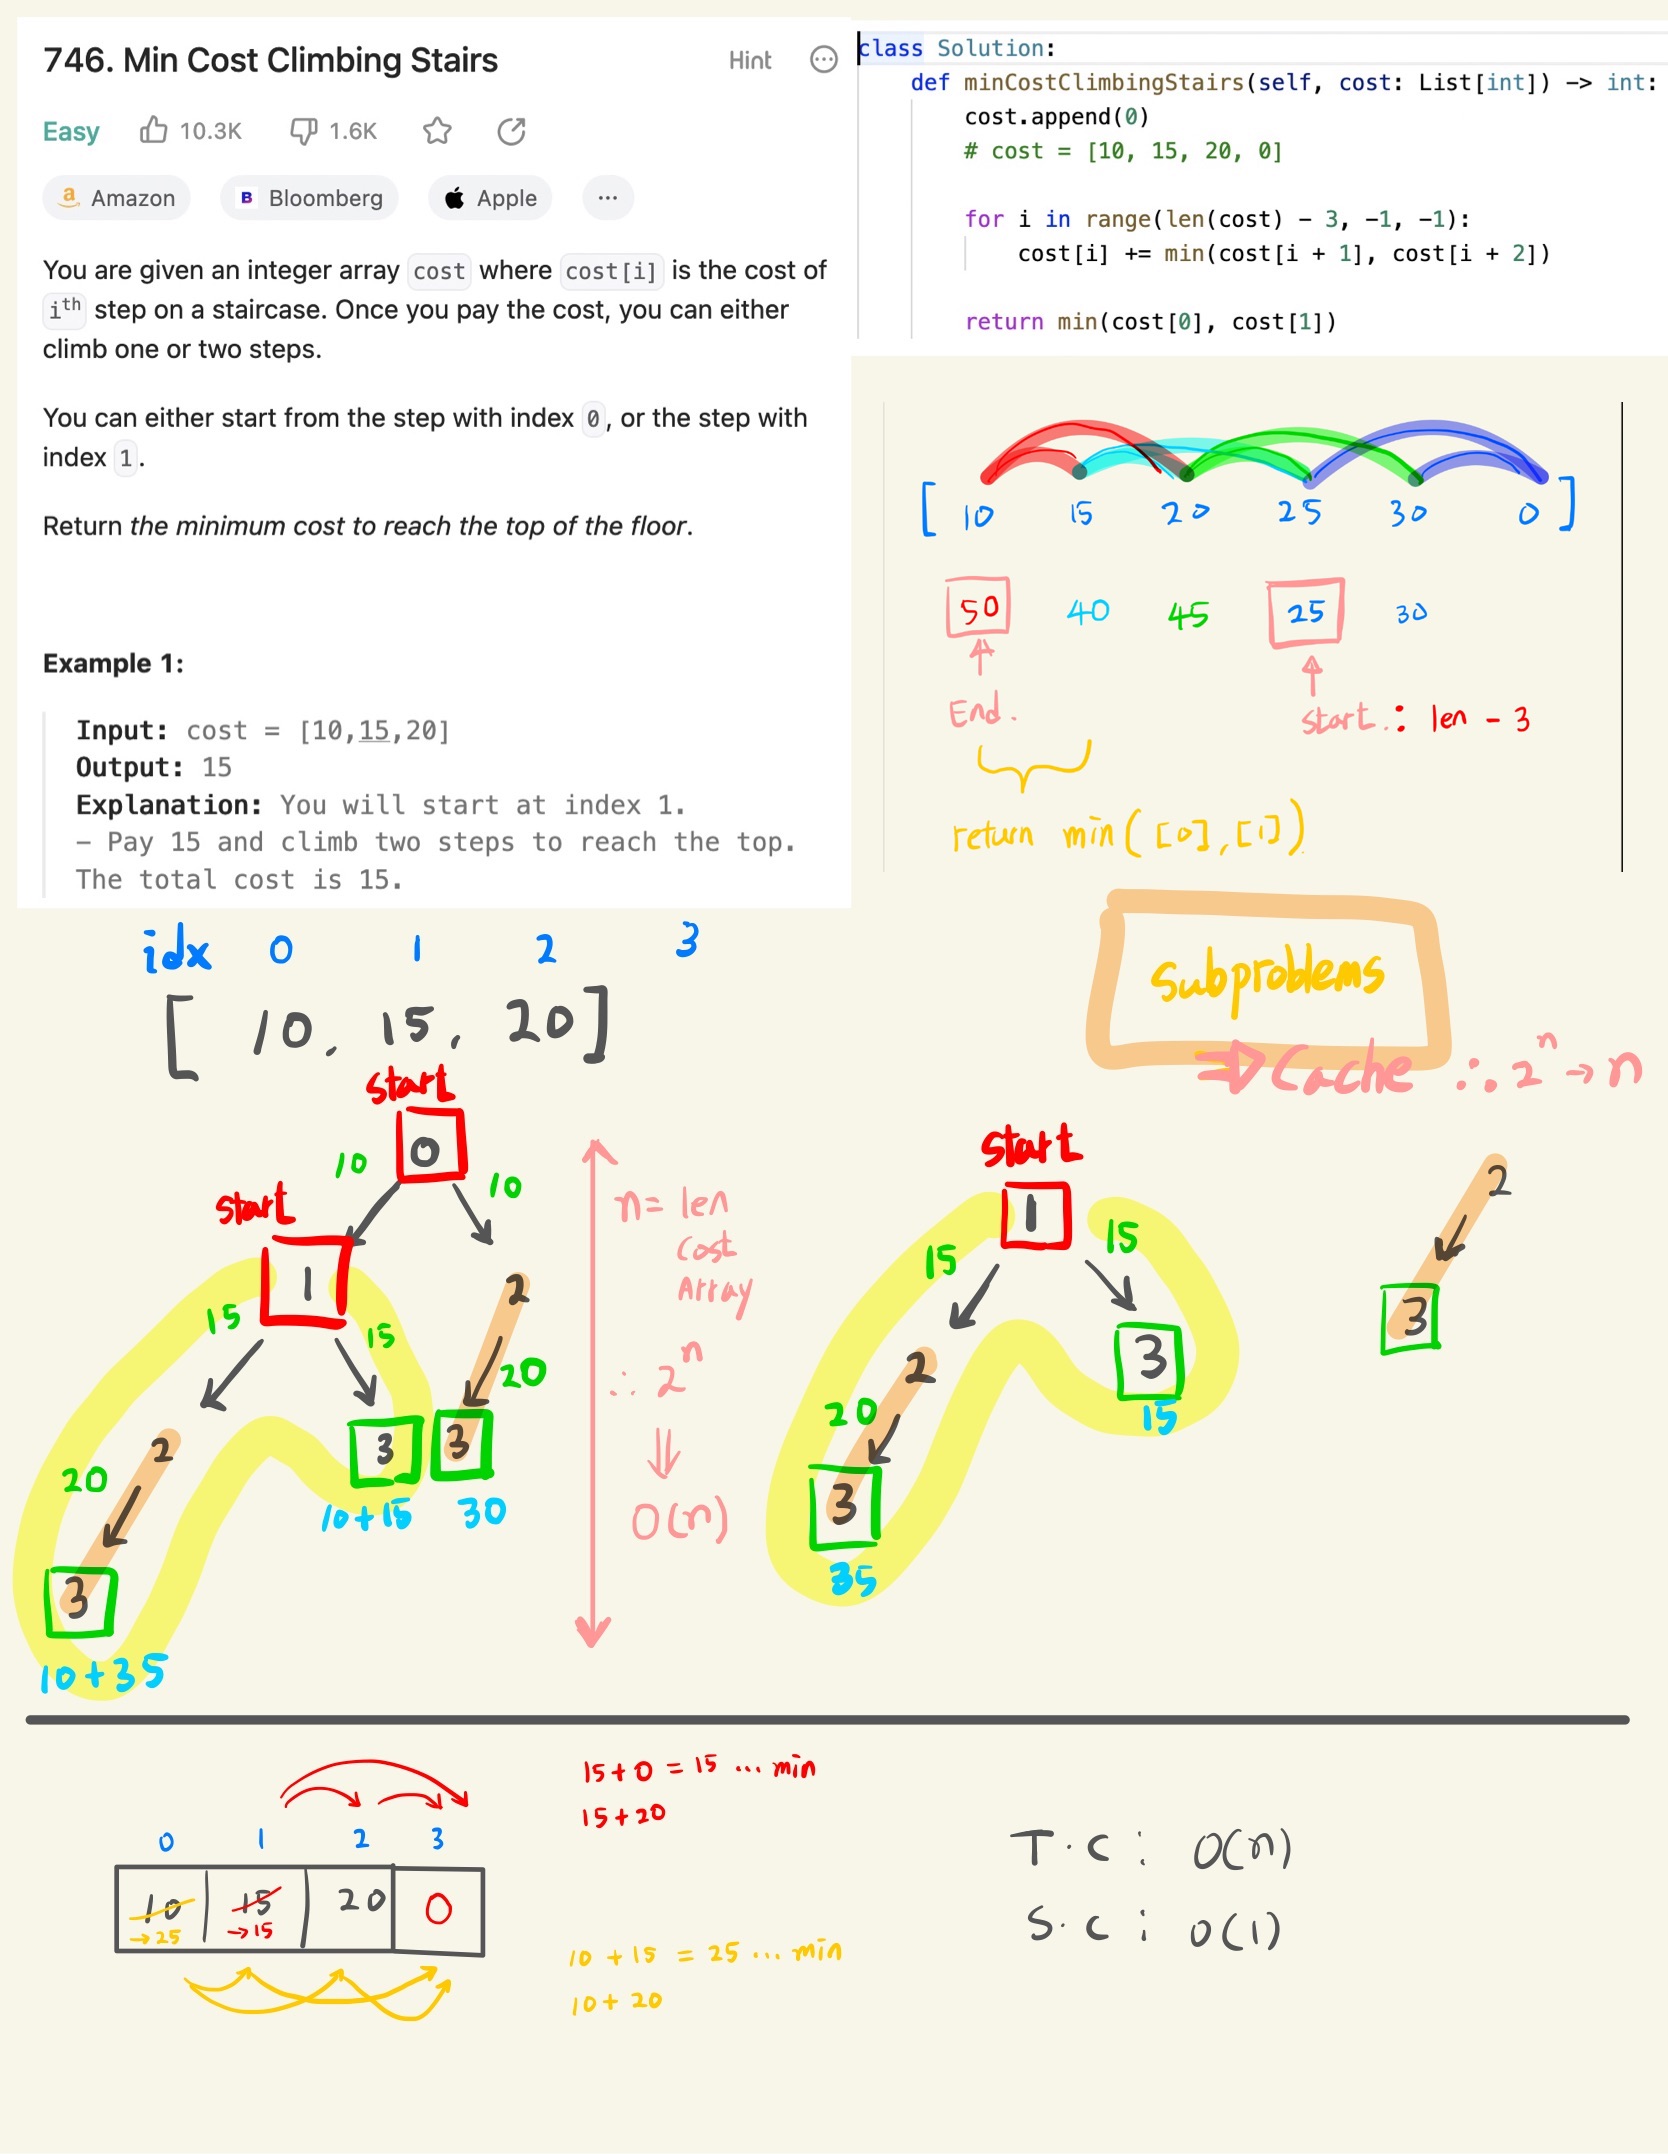 746. Min Cost Climbing Stairs
Hint
Easy 10.3K 1.6K
Amazon Bloomberg Apple ...
You are given an integer array cost where cost[i] is the cost of
ith step on a staircase. Once you pay the cost, you can either
climb one or two steps.
You can either start from the step with index 0, or the step with
index 1.
Return the minimum cost to reach the top of the floor.
Example 1:
Input: cost = [10,15,20]
Output: 15
Explanation: You will start at index 1.
- Pay 15 and climb two steps to reach the top.
The total cost is 15.
class Solution:
def minCostClimbingStairs(self, cost: List[int]) -> int:
cost.append(0)
# cost = [10, 15, 20, 0]
for i in range(len(cost) - 3, -1, -1):
cost[i] += min(cost[i + 1], cost[i + 2])
return min(cost[0], cost[1])
[ 10 15 20 25 30 0 ]
50 40 45 25 30
End.
start.: len - 3
return min([0],[1])
subproblems
⇒ Cache ∴ 2^n → n
idx 0 1 2 3
[ 10, 15, 20 ]
start
0
10 10
start
1
15 15
2
20
3
10+35
3
10+15
2
20
3
30
n = len
Cost
Array
∴ 2^n
⇓
O(n)
start
1
15 15
2
20
3
35
3
15
2
3
0 1 2 3
10 15 20 0
→25 →15
15+0 = 15 ... min
15+20
10 + 15 = 25 ... min
10 + 20
T.C : O(n)
S.C : O(1)